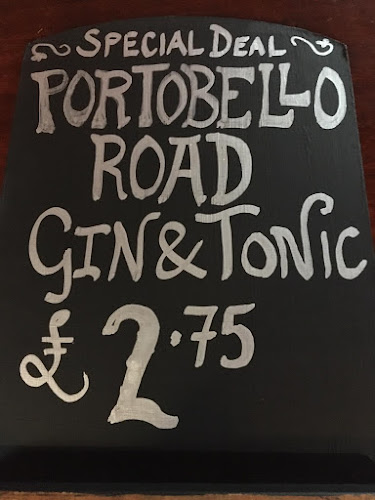 SPECIAL DEAL
PORTOBELLO
ROAD
GIN & TONIC
£2.75